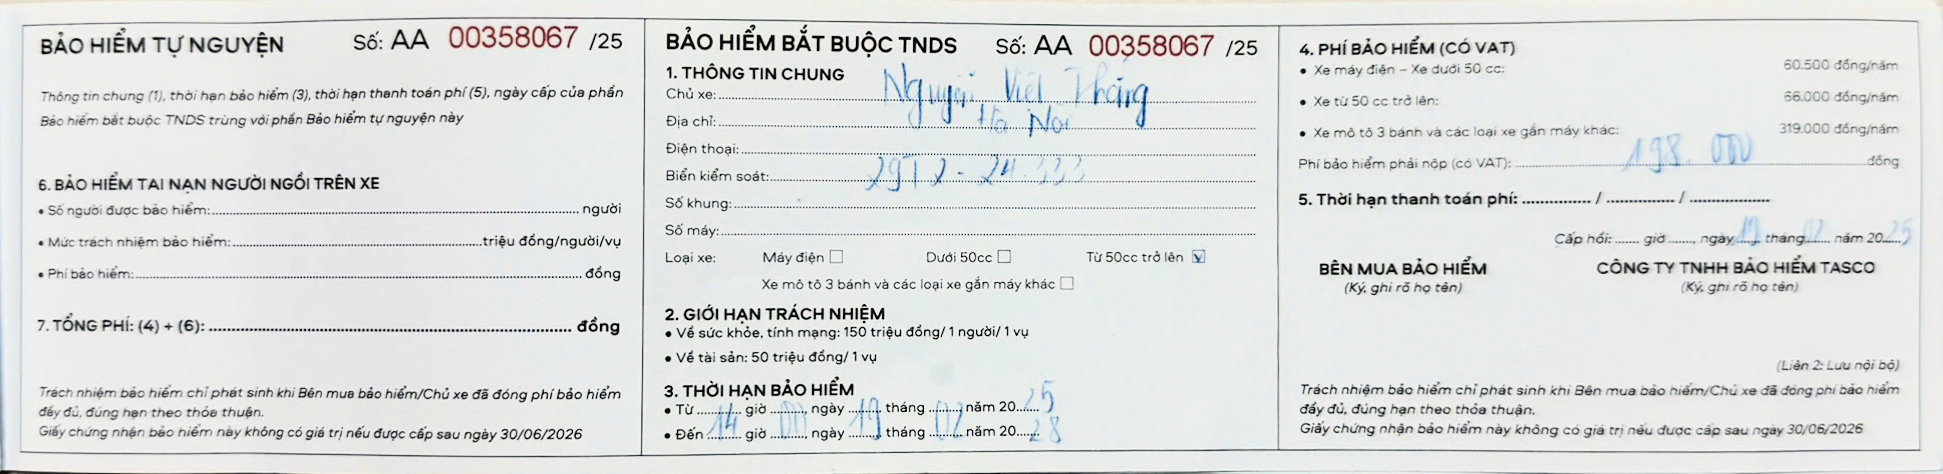 BẢO HIỂM TỰ NGUYỆN Số: AA 00358067 /25
Thông tin chung (1), thời hạn bảo hiểm (3), thời hạn thanh toán phí (5), ngày cấp của phần
Bảo hiểm bắt buộc TNDS trùng với phần Bảo hiểm tự nguyện này
6. BẢO HIỂM TAI NẠN NGƯỜI NGỒI TRÊN XE
• Số người được bảo hiểm: người
• Mức trách nhiệm bảo hiểm: triệu đồng/người/vụ
• Phí bảo hiểm: đồng
7. TỔNG PHÍ: (4) + (6): đồng
Trách nhiệm bảo hiểm chỉ phát sinh khi Bên mua bảo hiểm/Chủ xe đã đóng phí bảo hiểm
đầy đủ, đúng hạn theo thỏa thuận.
Giấy chứng nhận bảo hiểm này không có giá trị nếu được cấp sau ngày 30/06/2026
BẢO HIỂM BẮT BUỘC TNDS Số: AA 00358067 /25
1. THÔNG TIN CHUNG
Chủ xe: Nguyễn Viết Thắng
Địa chỉ: Hà Nội
Điện thoại:
Biển kiểm soát: 29T2 - 24.333
Số khung:
Số máy:
Loại xe: Máy điện Dưới 50cc Từ 50cc trở lên
Xe mô tô 3 bánh và các loại xe gắn máy khác
2. GIỚI HẠN TRÁCH NHIỆM
• Về sức khỏe, tính mạng: 150 triệu đồng/ 1 người/ 1 vụ
• Về tài sản: 50 triệu đồng/ 1 vụ
3. THỜI HẠN BẢO HIỂM
• Từ 14 giờ 00, ngày 19 tháng 02 năm 2025
• Đến giờ, ngày tháng năm 2028
4. PHÍ BẢO HIỂM (CÓ VAT)
• Xe máy điện – Xe dưới 50 cc: 60.500 đồng/năm
• Xe từ 50 cc trở lên: 66.000 đồng/năm
• Xe mô tô 3 bánh và các loại xe gắn máy khác: 319.000 đồng/năm
Phí bảo hiểm phải nộp (có VAT): 198.000 đồng
5. Thời hạn thanh toán phí: / /
Cấp hồi: giờ, ngày 19 tháng 02 năm 2025
BÊN MUA BẢO HIỂM CÔNG TY TNHH BẢO HIỂM TASCO
(Ký, ghi rõ họ tên) (Ký, ghi rõ họ tên)
(Liên 2: Lưu nội bộ)
Trách nhiệm bảo hiểm chỉ phát sinh khi Bên mua bảo hiểm/Chủ xe đã đóng phí bảo hiểm
đầy đủ, đúng hạn theo thỏa thuận.
Giấy chứng nhận bảo hiểm này không có giá trị nếu được cấp sau ngày 30/06/2026